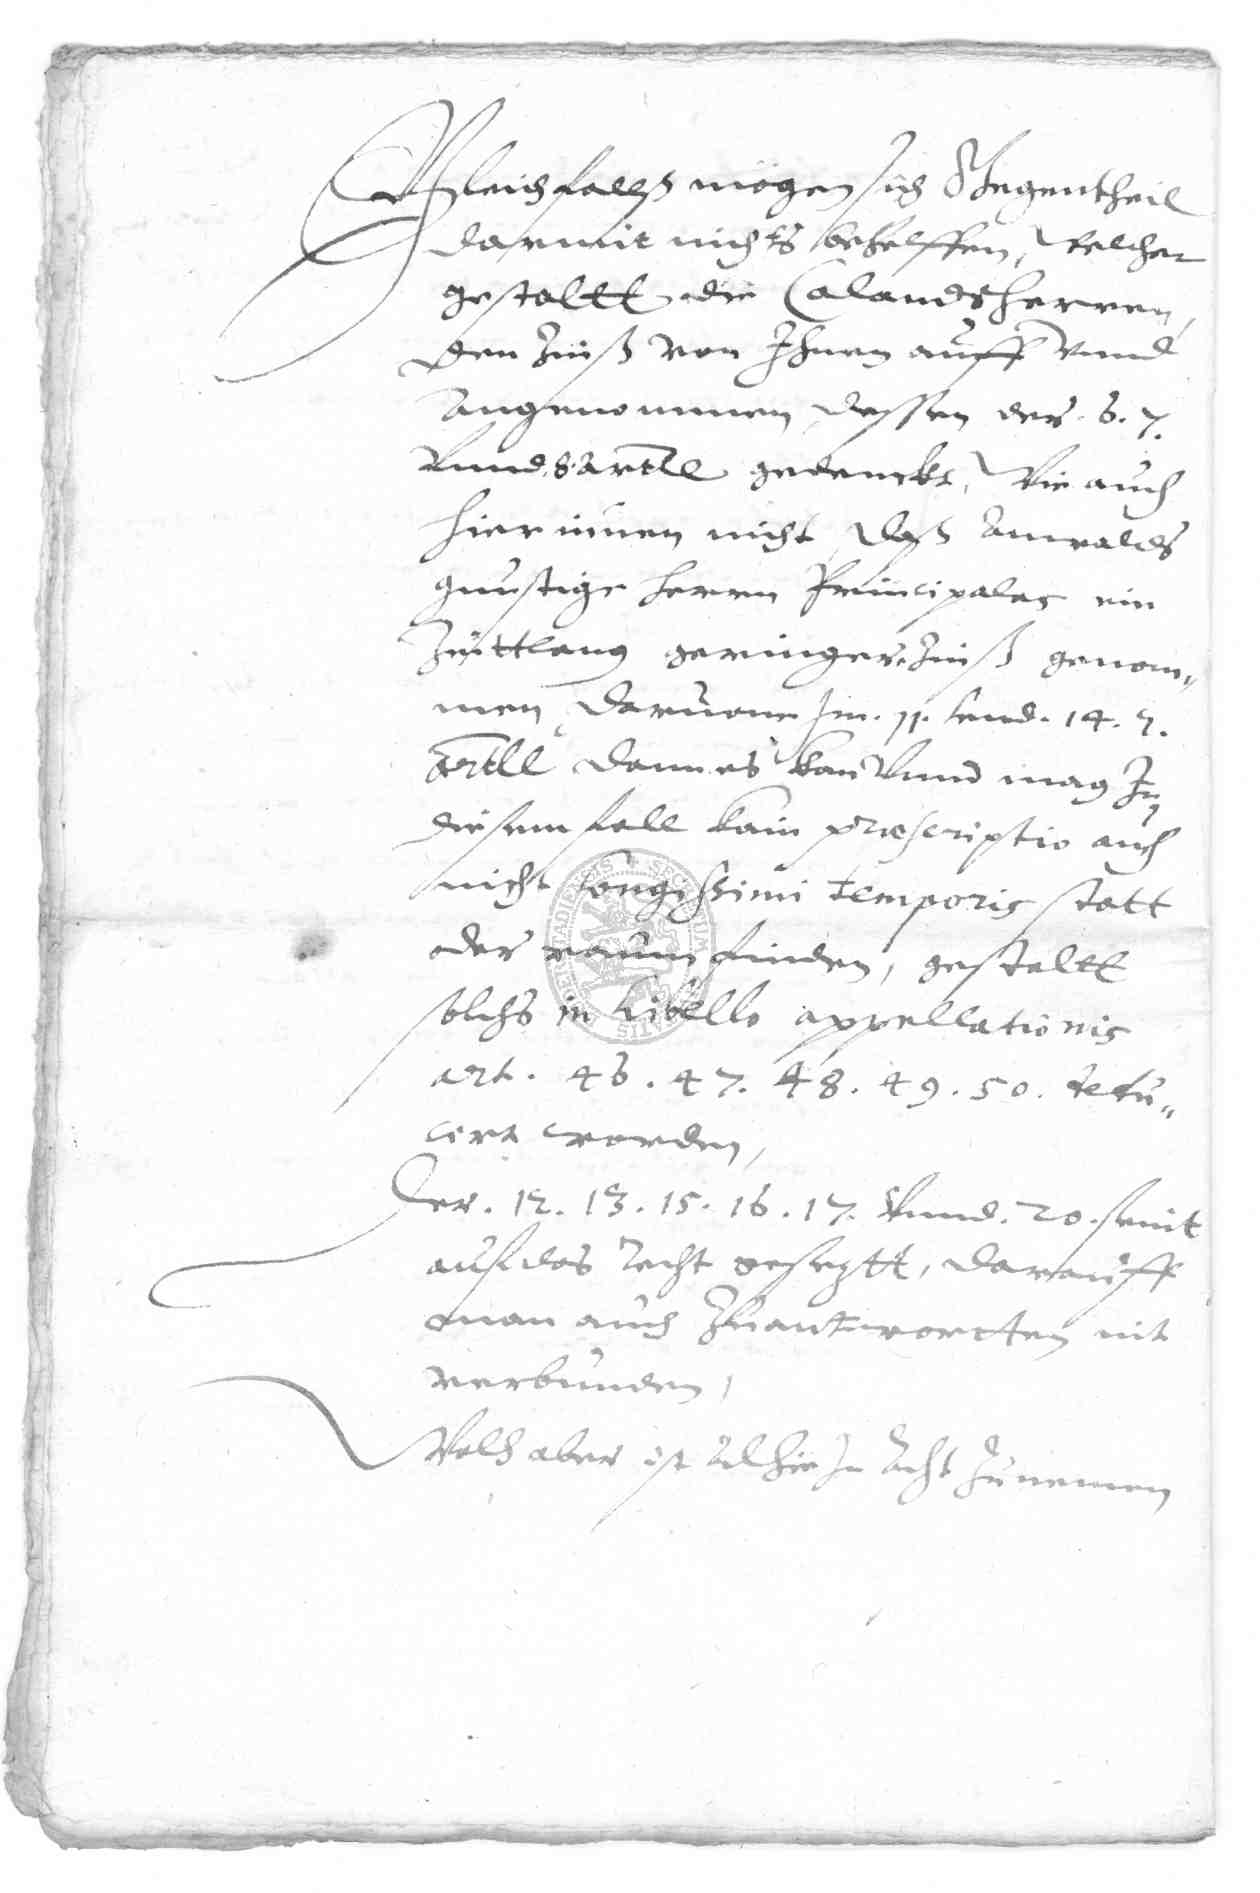 Gleichfalls mögen sich Gegentheil
darmit nichts behelffen, welcher
gestaltt die Calandsherren,
den Zinß von Ihnen auff vnnd
Angenommen, dessen der. 6. 7.
Vnnd. 8. artll gedenckt, Wie auch
hierinnen nicht, daß Anwalds
gunstige herrn Principales ein
Zeittlang geringer Zinß genom„
men, daruonn Im. 11. Vnnd. 14. 9.
artll dann es kan Vnnd mag In
diesem fall kain præscriptio auch
nicht longissimi temporis statt
oder raum finden, gestaltt
solchs in libello appellationis
art. 46. 47. 48. 49. 50. dedu„
cirt worden,
Der. 12. 13. 15. 16. 17. Vnnd. 20. seint
auf das Recht geseztt, darauff
man auch Zuantwortten nit
verbunden,
Welch aber ist Alhie In Acht Zunemen
SECRETUM